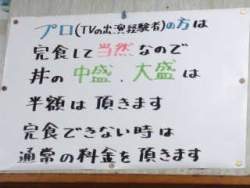 プロ(TVの出演経験者)の方は
完食して当然なので
丼の中盛、大盛は
半額は頂きます
完食できない時は
通常の料金を頂きます